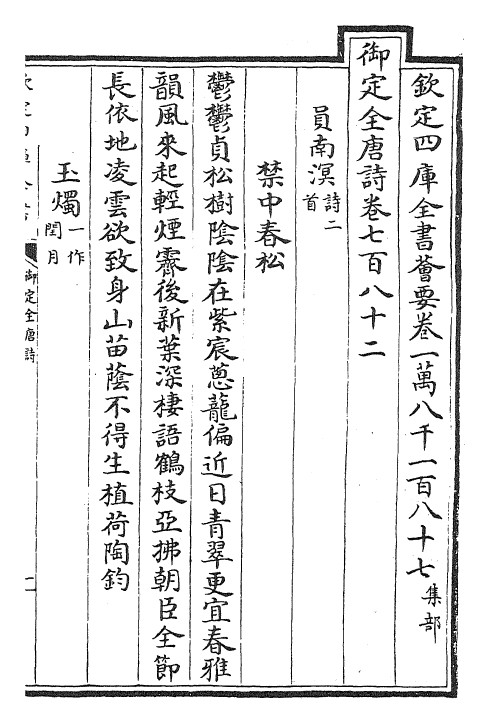 欽定四庫全書薈要卷一萬八千一百八十七 集部
御定全唐詩卷七百八十二
員南溟 詩二首
禁中春松
鬱鬱貞松樹陰陰在紫宸蔥蘢偏近日青翠更宜春雅
韻風來起輕煙霽後新葉深棲語鶴枝亞拂朝臣全節
長依地凌雲欲致身山苗蔭不得生植荷陶鈞
玉燭 一作閏月
御定全唐詩